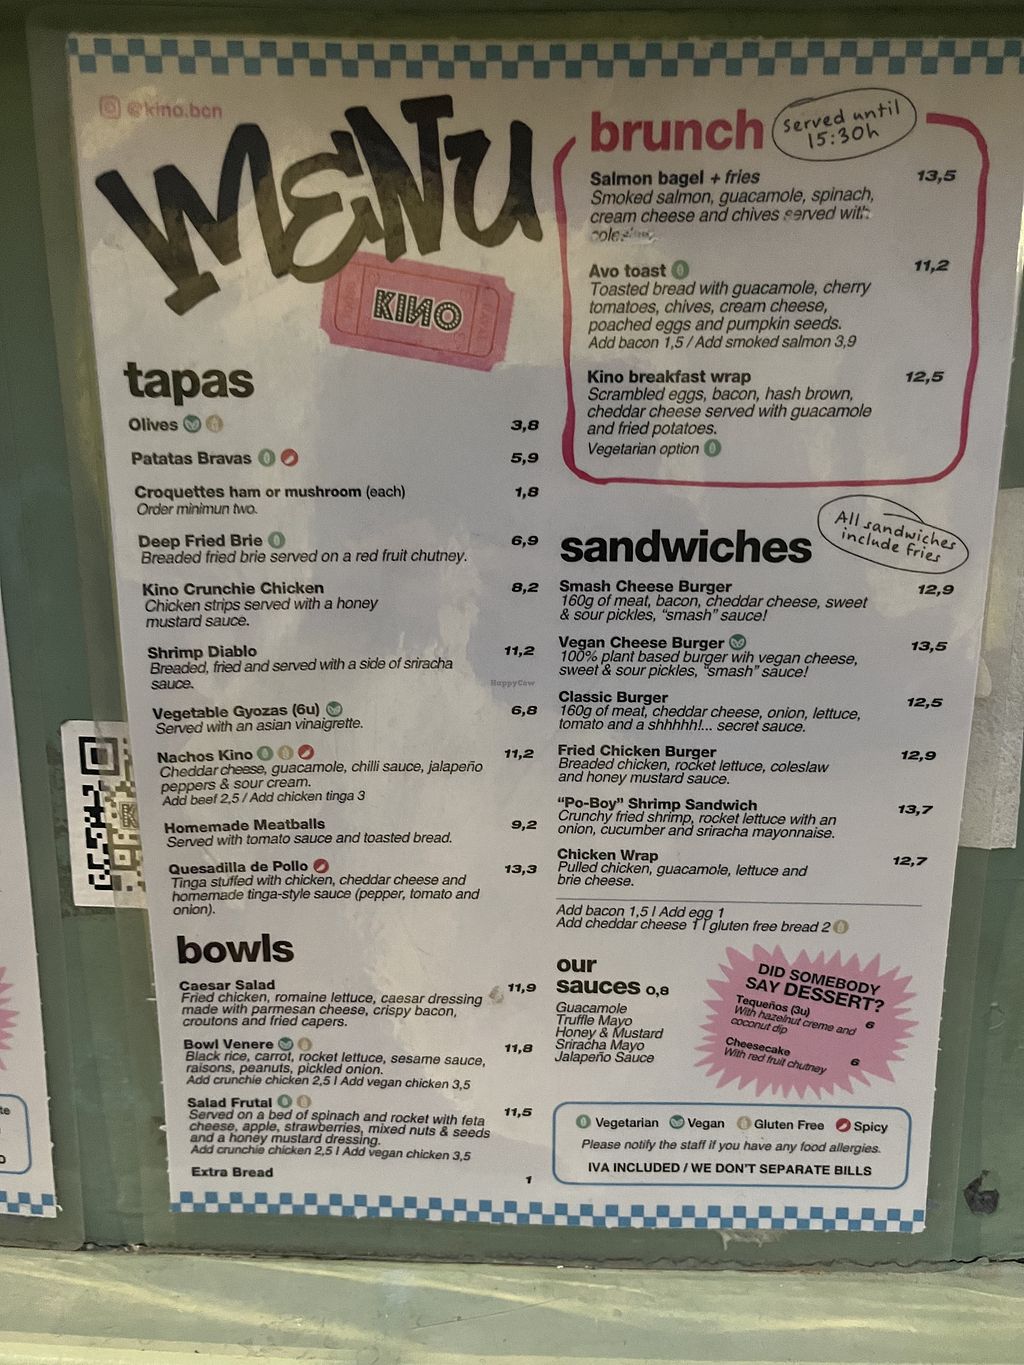 @kino.bcn
MENU
KINO
tapas
Olives 3,8
Patatas Bravas 5,9
Croquettes ham or mushroom (each) 1,8
Order minimun two.
Deep Fried Brie 6,9
Breaded fried brie served on a red fruit chutney.
Kino Crunchie Chicken 8,2
Chicken strips served with a honey
mustard sauce.
Shrimp Diablo 11,2
Breaded, fried and served with a side of sriracha
sauce.
Vegetable Gyozas (6u) 6,8
Served with an asian vinaigrette.
Nachos Kino 11,2
Cheddar cheese, guacamole, chilli sauce, jalapeño
peppers & sour cream.
Add beef 2,5 / Add chicken tinga 3
Homemade Meatballs 9,2
Served with tomato sauce and toasted bread.
Quesadilla de Pollo 13,3
Tinga stuffed with chicken, cheddar cheese and
homemade tinga-style sauce (pepper, tomato and
onion).
bowls
Caesar Salad 11,9
Fried chicken, romaine lettuce, caesar dressing
made with parmesan cheese, crispy bacon,
croutons and fried capers.
Bowl Venere 11,8
Black rice, carrot, rocket lettuce, sesame sauce,
raisons, peanuts, pickled onion.
Add crunchie chicken 2,5 | Add vegan chicken 3,5
Salad Frutal 11,5
Served on a bed of spinach and rocket with feta
cheese, apple, strawberries, mixed nuts & seeds
and a honey mustard dressing.
Add crunchie chicken 2,5 | Add vegan chicken 3,5
Extra Bread 1
brunch
served until
15:30h
Salmon bagel + fries 13,5
Smoked salmon, guacamole, spinach,
cream cheese and chives served with
Avo toast 11,2
Toasted bread with guacamole, cherry
tomatoes, chives, cream cheese,
poached eggs and pumpkin seeds.
Add bacon 1,5 / Add smoked salmon 3,9
Kino breakfast wrap 12,5
Scrambled eggs, bacon, hash brown,
cheddar cheese served with guacamole
and fried potatoes.
Vegetarian option
sandwiches
All sandwiches
include fries
Smash Cheese Burger 12,9
160g of meat, bacon, cheddar cheese, sweet
& sour pickles, "smash" sauce!
Vegan Cheese Burger 13,5
100% plant based burger wih vegan cheese,
sweet & sour pickles, "smash" sauce!
Classic Burger 12,5
160g of meat, cheddar cheese, onion, lettuce,
tomato and a shhhhh!... secret sauce.
Fried Chicken Burger 12,9
Breaded chicken, rocket lettuce, coleslaw
and honey mustard sauce.
"Po-Boy" Shrimp Sandwich 13,7
Crunchy fried shrimp, rocket lettuce with an
onion, cucumber and sriracha mayonnaise.
Chicken Wrap 12,7
Pulled chicken, guacamole, lettuce and
brie cheese.
Add bacon 1,5 | Add egg 1
Add cheddar cheese 1 | gluten free bread 2
our
sauces 0,8
Guacamole
Truffle Mayo
Honey & Mustard
Sriracha Mayo
Jalapeño Sauce
DID SOMEBODY
SAY DESSERT?
Tequeños (3u) 6
With hazelnut creme and
coconut dip
Cheesecake 6
With red fruit chutney
Vegetarian Vegan Gluten Free Spicy
Please notify the staff if you have any food allergies.
IVA INCLUDED / WE DON'T SEPARATE BILLS
HappyCow